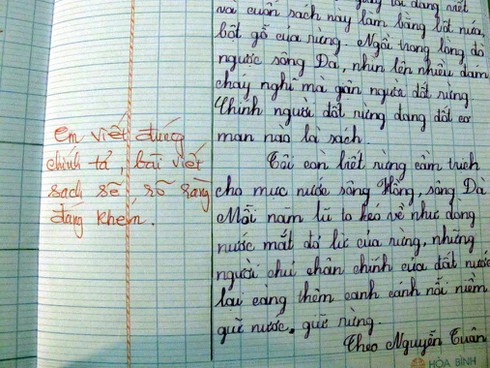 tôi đang viết
và cuốn sách này làm bằng bột nứa,
bột gỗ của rừng. Ngồi trong lòng đò
ngược sông Đà, nhìn lên nhiều đám
cháy nghĩ mà giận người đốt rừng
Chính người đốt rừng đang đốt cơ
man nào là sách.
Tôi còn biết rừng cầm trịch
cho mực nước sông Hồng, sông Đà
Mỗi năm lũ to kéo về như dòng
nước mắt đỏ lừ của rừng, những
người chủ chân chính của đất nước
lại càng thêm canh cánh nỗi niềm
giữ nước, giữ rừng.
Theo Nguyễn Tuân
Em viết đúng
chính tả, bài viết
sạch sẽ rõ ràng
đáng khen.
HÒA BÌNH